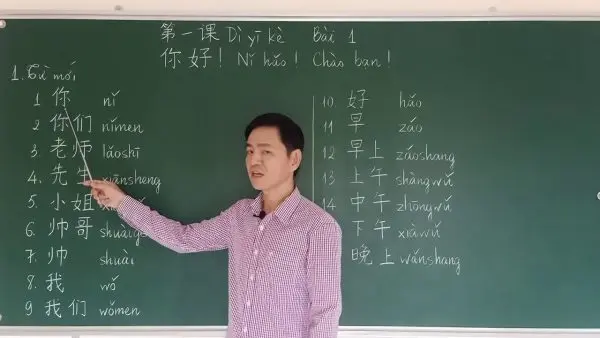 第一课 Dì yī kè Bài 1
你好! Nǐ hǎo! Chào bạn!
1. Từ mới
1 你 nǐ
2 你们 nǐmen
3 老师 lǎoshī
4. 先生 xiānsheng
5. 小姐
6. 帅哥
7. 帅 shuài
8. 我 wǒ
9 我们 wǒmen
10 好 hǎo
11 早 zǎo
12 早上 zǎoshang
13 上午 shàngwǔ
14 中午 zhōngwǔ
下午 xiàwǔ
晚上 wǎnshang